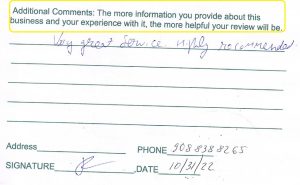 Additional Comments: The more information you provide about this
business and your experience with it, the more helpful your review will be.
Very great Service highly recommended
Address
PHONE 908 838 8265
SIGNATURE DATE 10/31/22